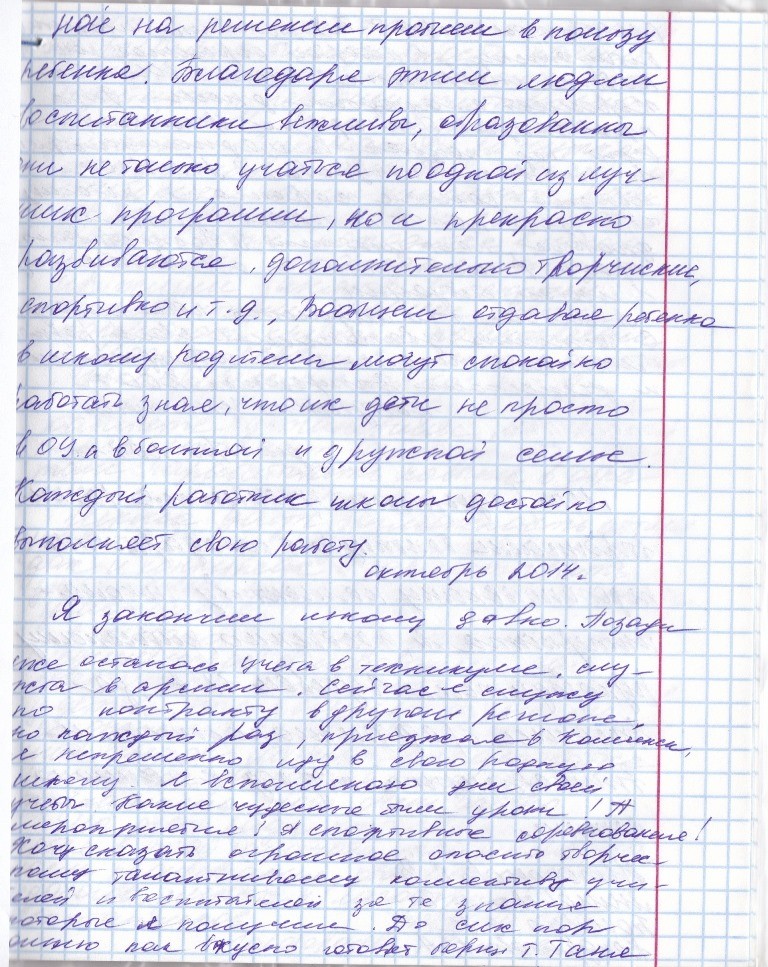 ной на решении проблем в пользу
ребенка. Благодаря этим людям
воспитанники вежливы, образованны
они не только учаться по одной из луч-
ших программ, но и прекрасно
развиваются, дополнительно творчиские,
спортивно и т.д., Вообщем отдавая ребенка
в школу родители могут спокойно
работать зная, что их дети не просто
в ОУ а в большой и дружной семье.
Каждый работник школы достойно
выполняет свою работу.
октябрь 2014г.
Я закончил школу давно. Позади
уже осталось учеба в техникуме, слу-
жба в армии. Сейчас я служу
по контракту в другом регионе,
но каждый раз, приезжая в
я непременно иду в свою родную
школу. Я вспоминаю дни своей
учебы. Какие чудесные были уроки! А
мероприятия! А спортивные соревнования!
Хочу сказать огромное спасибо творчес-
кому талантливому коллективу учи-
елей и воспитателей за те знания
которые я получил. До сих пор
помню как вкусно готовят борщ т. Таня